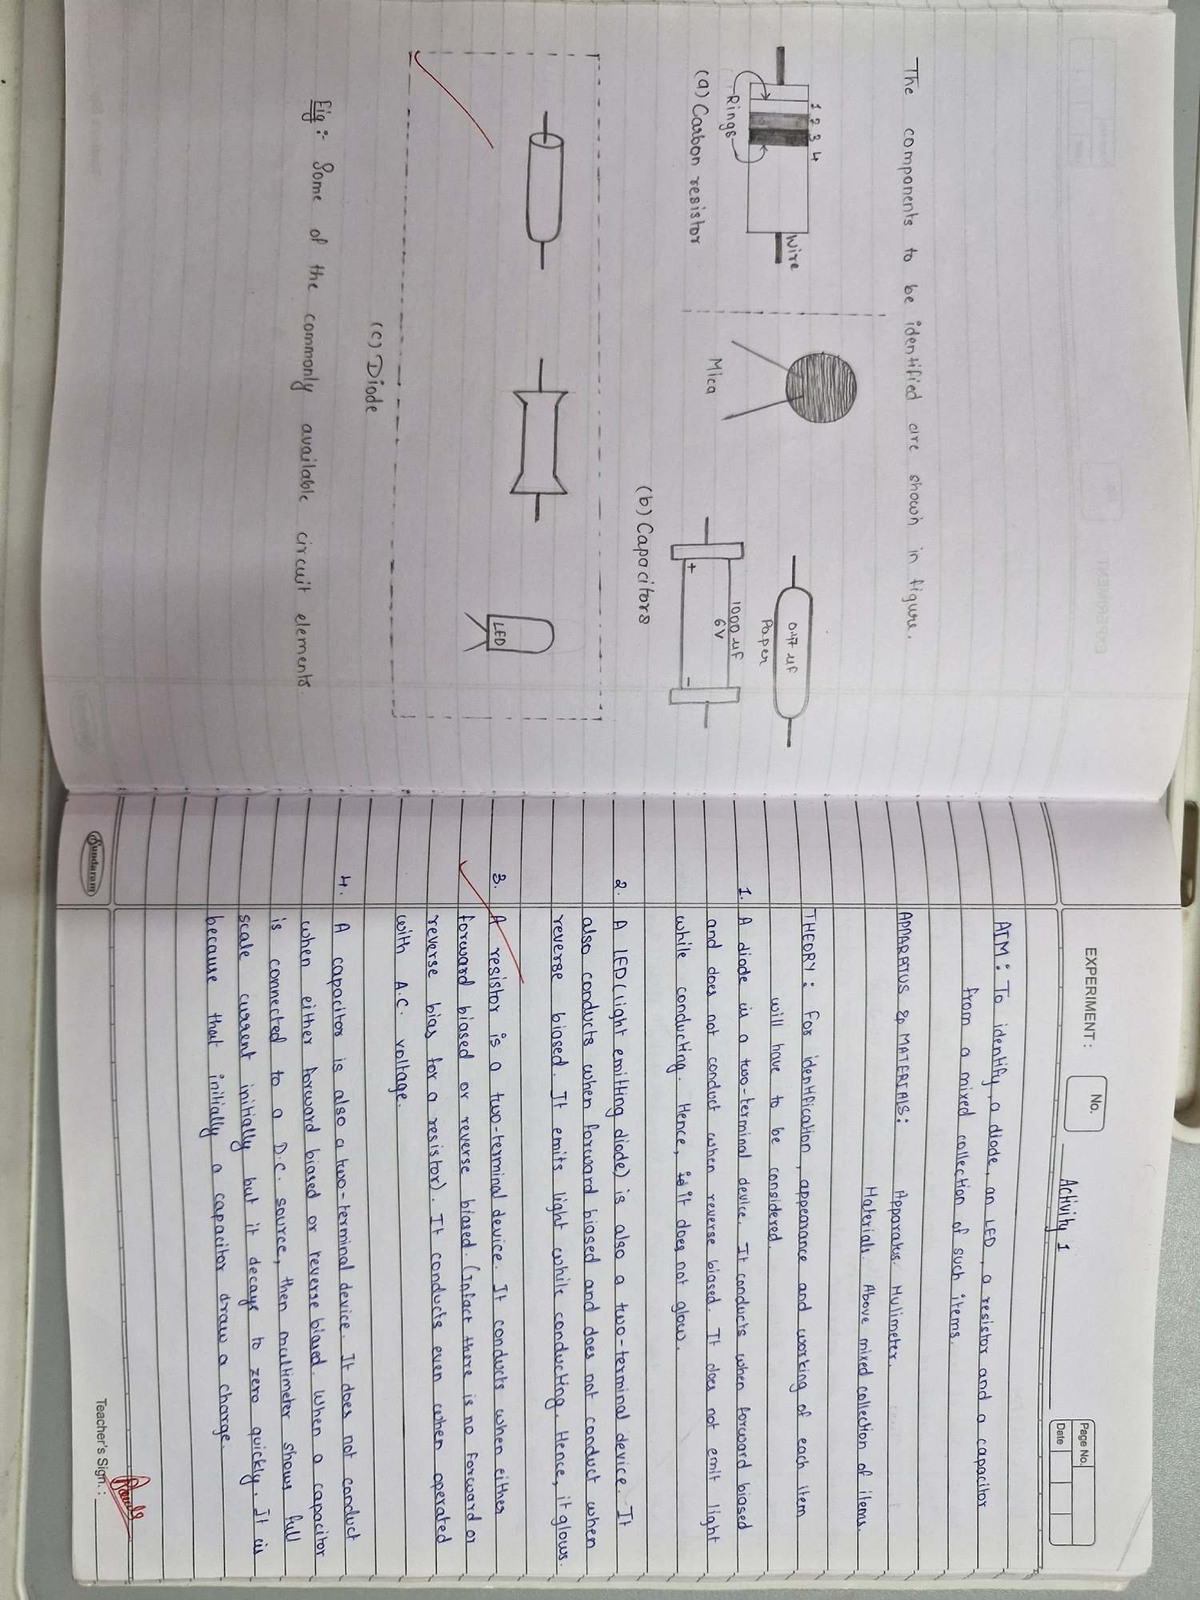 The components to be identified are shown in figure.
1 2 3 4
Wire
Rings
(a) Carbon resistor
Mica
0.47 uF
Paper
1000 uF
6V
+
-
(b) Capacitors
LED
(c) Diode
Fig:- Some of the commonly available circuit elements.
EXPERIMENT :
No.
Activity 1
Page No.
Date
AIM : To identify, a diode, an LED, a resistor and a capacitor
from a mixed collection of such items.
APPARATUS & MATERIALS: Apparatus. Mulimeter.
Materials. Above mixed collection of items.
THEORY : For identification, appearance and working of each item
will have to be considered.
1. A diode is a two-terminal device. It conducts when forward biased
and does not conduct when reverse biased. It does not emit light
while conducting. Hence, it does not glow.
2. A LED (light emitting diode) is also a two-terminal device. It
also conducts when forward biased and does not conduct when
reverse biased. It emits light while conducting. Hence, it glows.
3. A resistor is a two-terminal device. It conducts when either
forward biased or reverse biased. (Infact there is no forward or
reverse bias for a resistor). It conducts even when operated
with A.C. voltage.
4. A capacitor is also a two-terminal device. It does not conduct
when either forward biased or reverse biased. When a capacitor
is connected to a D.C. source, then multimeter shows full
scale current initially but it decays to zero quickly. It is
because that initially a capacitor draw a charge.
Sundaram
Teacher's Sign.: